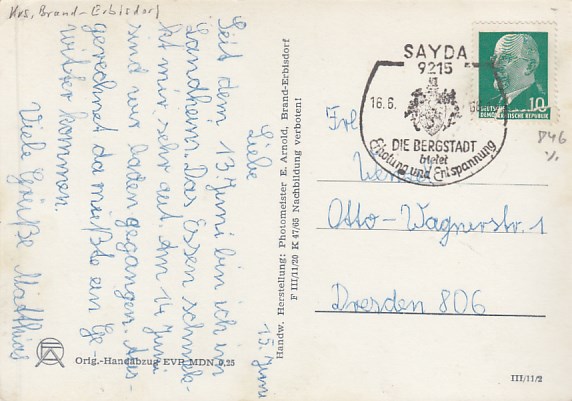 Krs. Brand-Erbisdorf
15. Juni
Liebe
Seit dem 13. Juni bin ich im
Landheim. Das Essen schmek-
kt mir sehr gut. Am 14. Juni
sind wir baden gegangen. Aus-
gerechnet da mußte ein Ge-
witter kommen.
Viele Grüße Matthias
Orig.-Handabzug EVP MDN 0,25
Handw. Herstellung: Photomeister E. Arnold, Brand-Erbisdorf
F III/11/20 K 47/65 Nachbildung verboten!
SAYDA
9215
16.6.
DIE BERGSTADT
bietet
Erholung und Entspannung
10
DEUTSCHE
DEMOKRATISCHE REPUBLIK
846
Frl.
Otto-Wagnerstr. 1
Dresden 806
III/11/2